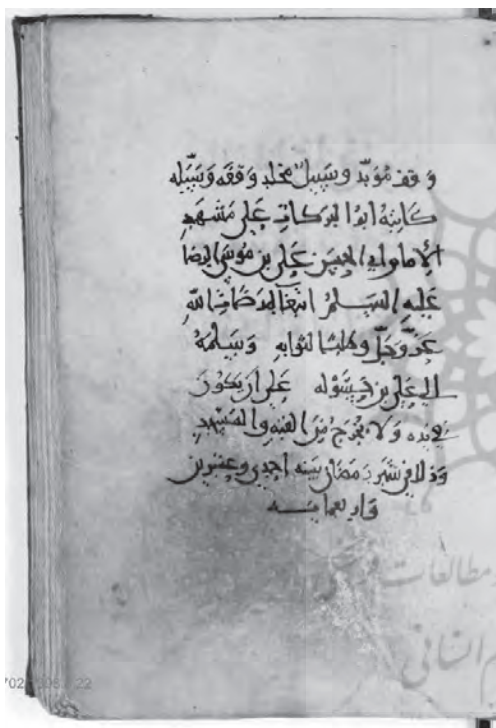 وقف مؤبد وسبيل مخلد وقفه وسبله
كاتبه ابو البركات علي مشهد
الامام ابي الحسن علي بن موسى الرضا
عليه السلم ابتغا لمرضات الله
عز وجل وطلبا لثوابه وسلمه
الى علي بن حسوله على ان يكون
في يده ولا يخرج من القبه والمشهد
وذلك في شهر رمضان سنه احدى وعشرين
واربعمايه
مطالعات
م انسانی